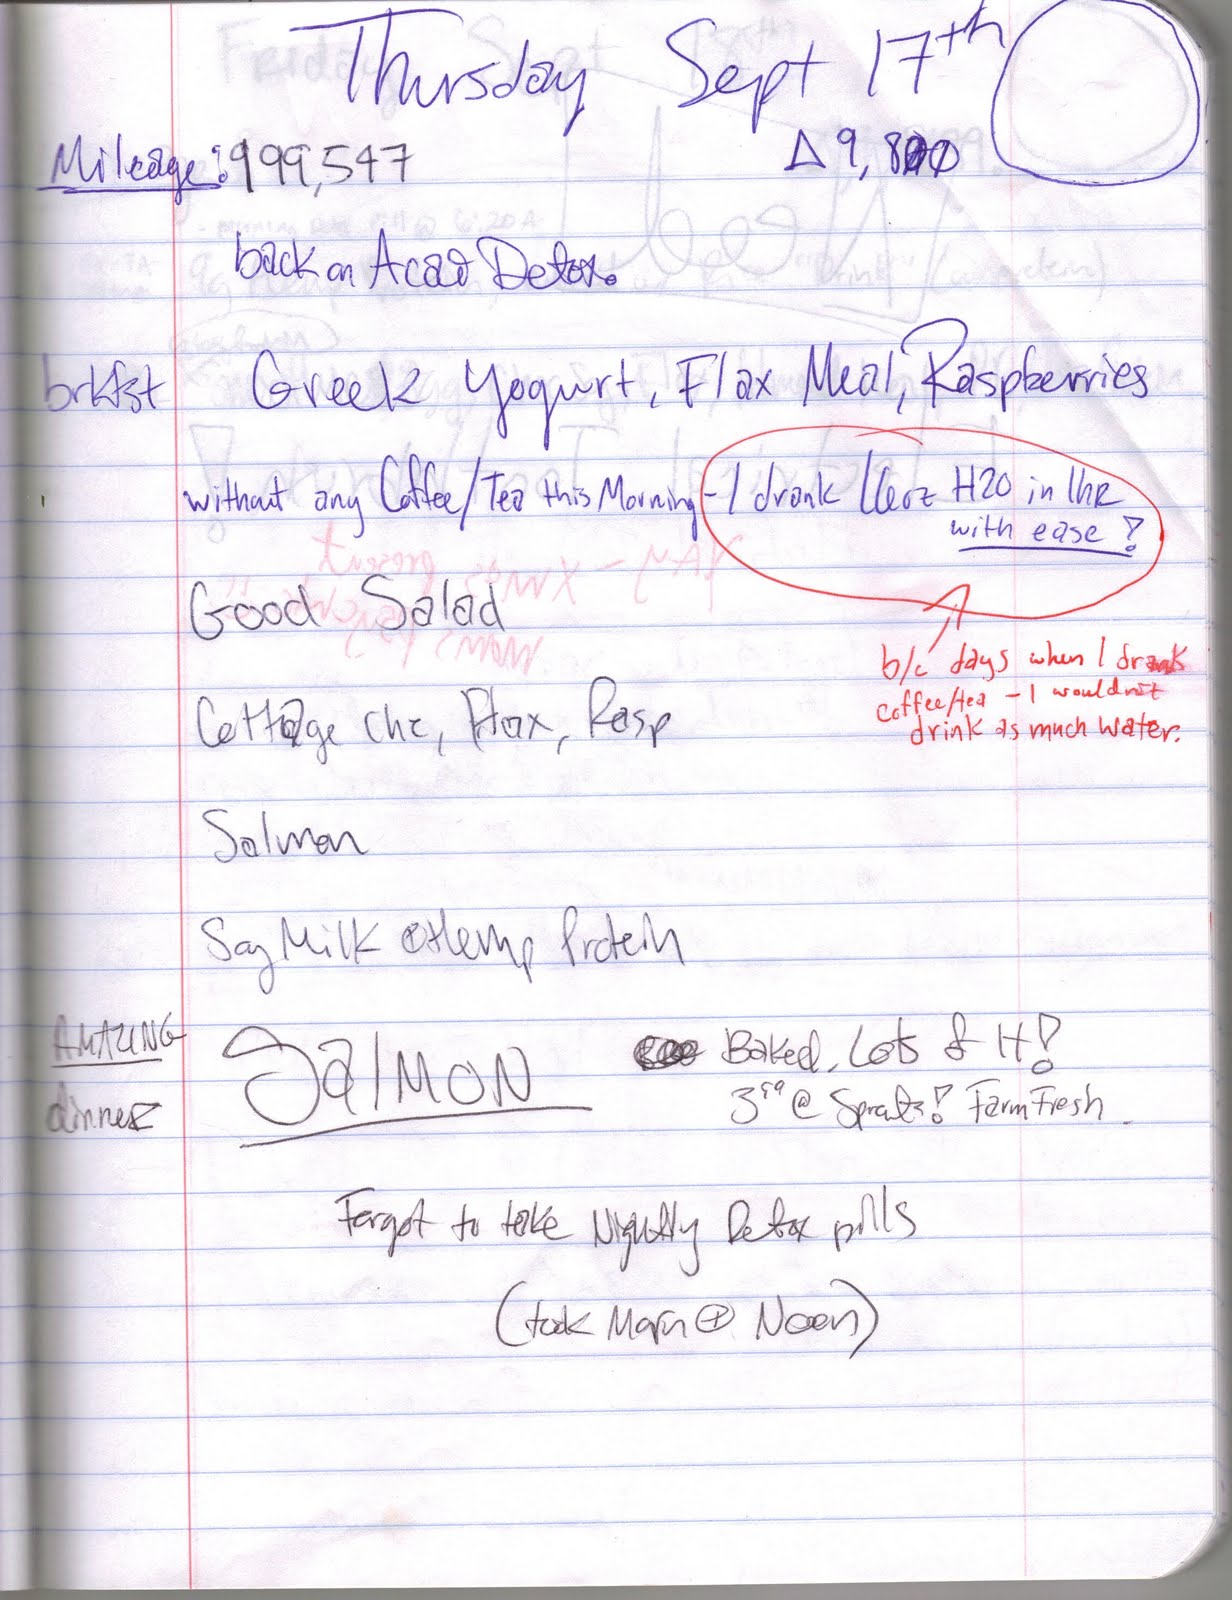 Thursday Sept 17th
Mileage: 999,547 Δ 9,800
back on Acai Detox.
brkfst Greek Yogurt, Flax Meal, Raspberries
without any Coffee/Tea this Morning - I drank 16oz H2O in 1hr
with ease!
Good Salad
b/c days when I drank
coffee/tea - I wouldn't
drink as much water.
Cottage chz, Flax, Rasp
Salmon
Soy Milk Hemp Protein
AMAZING
dinner
SalMON
Baked, Lots of it!
3.99 @ Sprouts! Farm Fresh
Forgot to take Nightly Detox pills
(took Morn @ Noon)